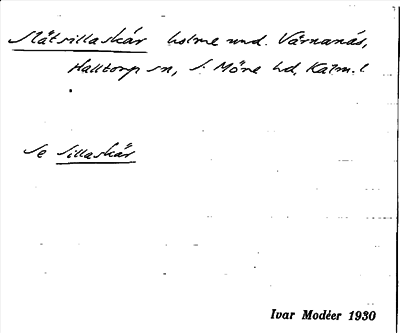 Slätsillaskär holme und. Värnanäs,
Halltorp sn, S. Möre hd, Kalm. l
Se Sillaskär
Ivar Modéer 1930